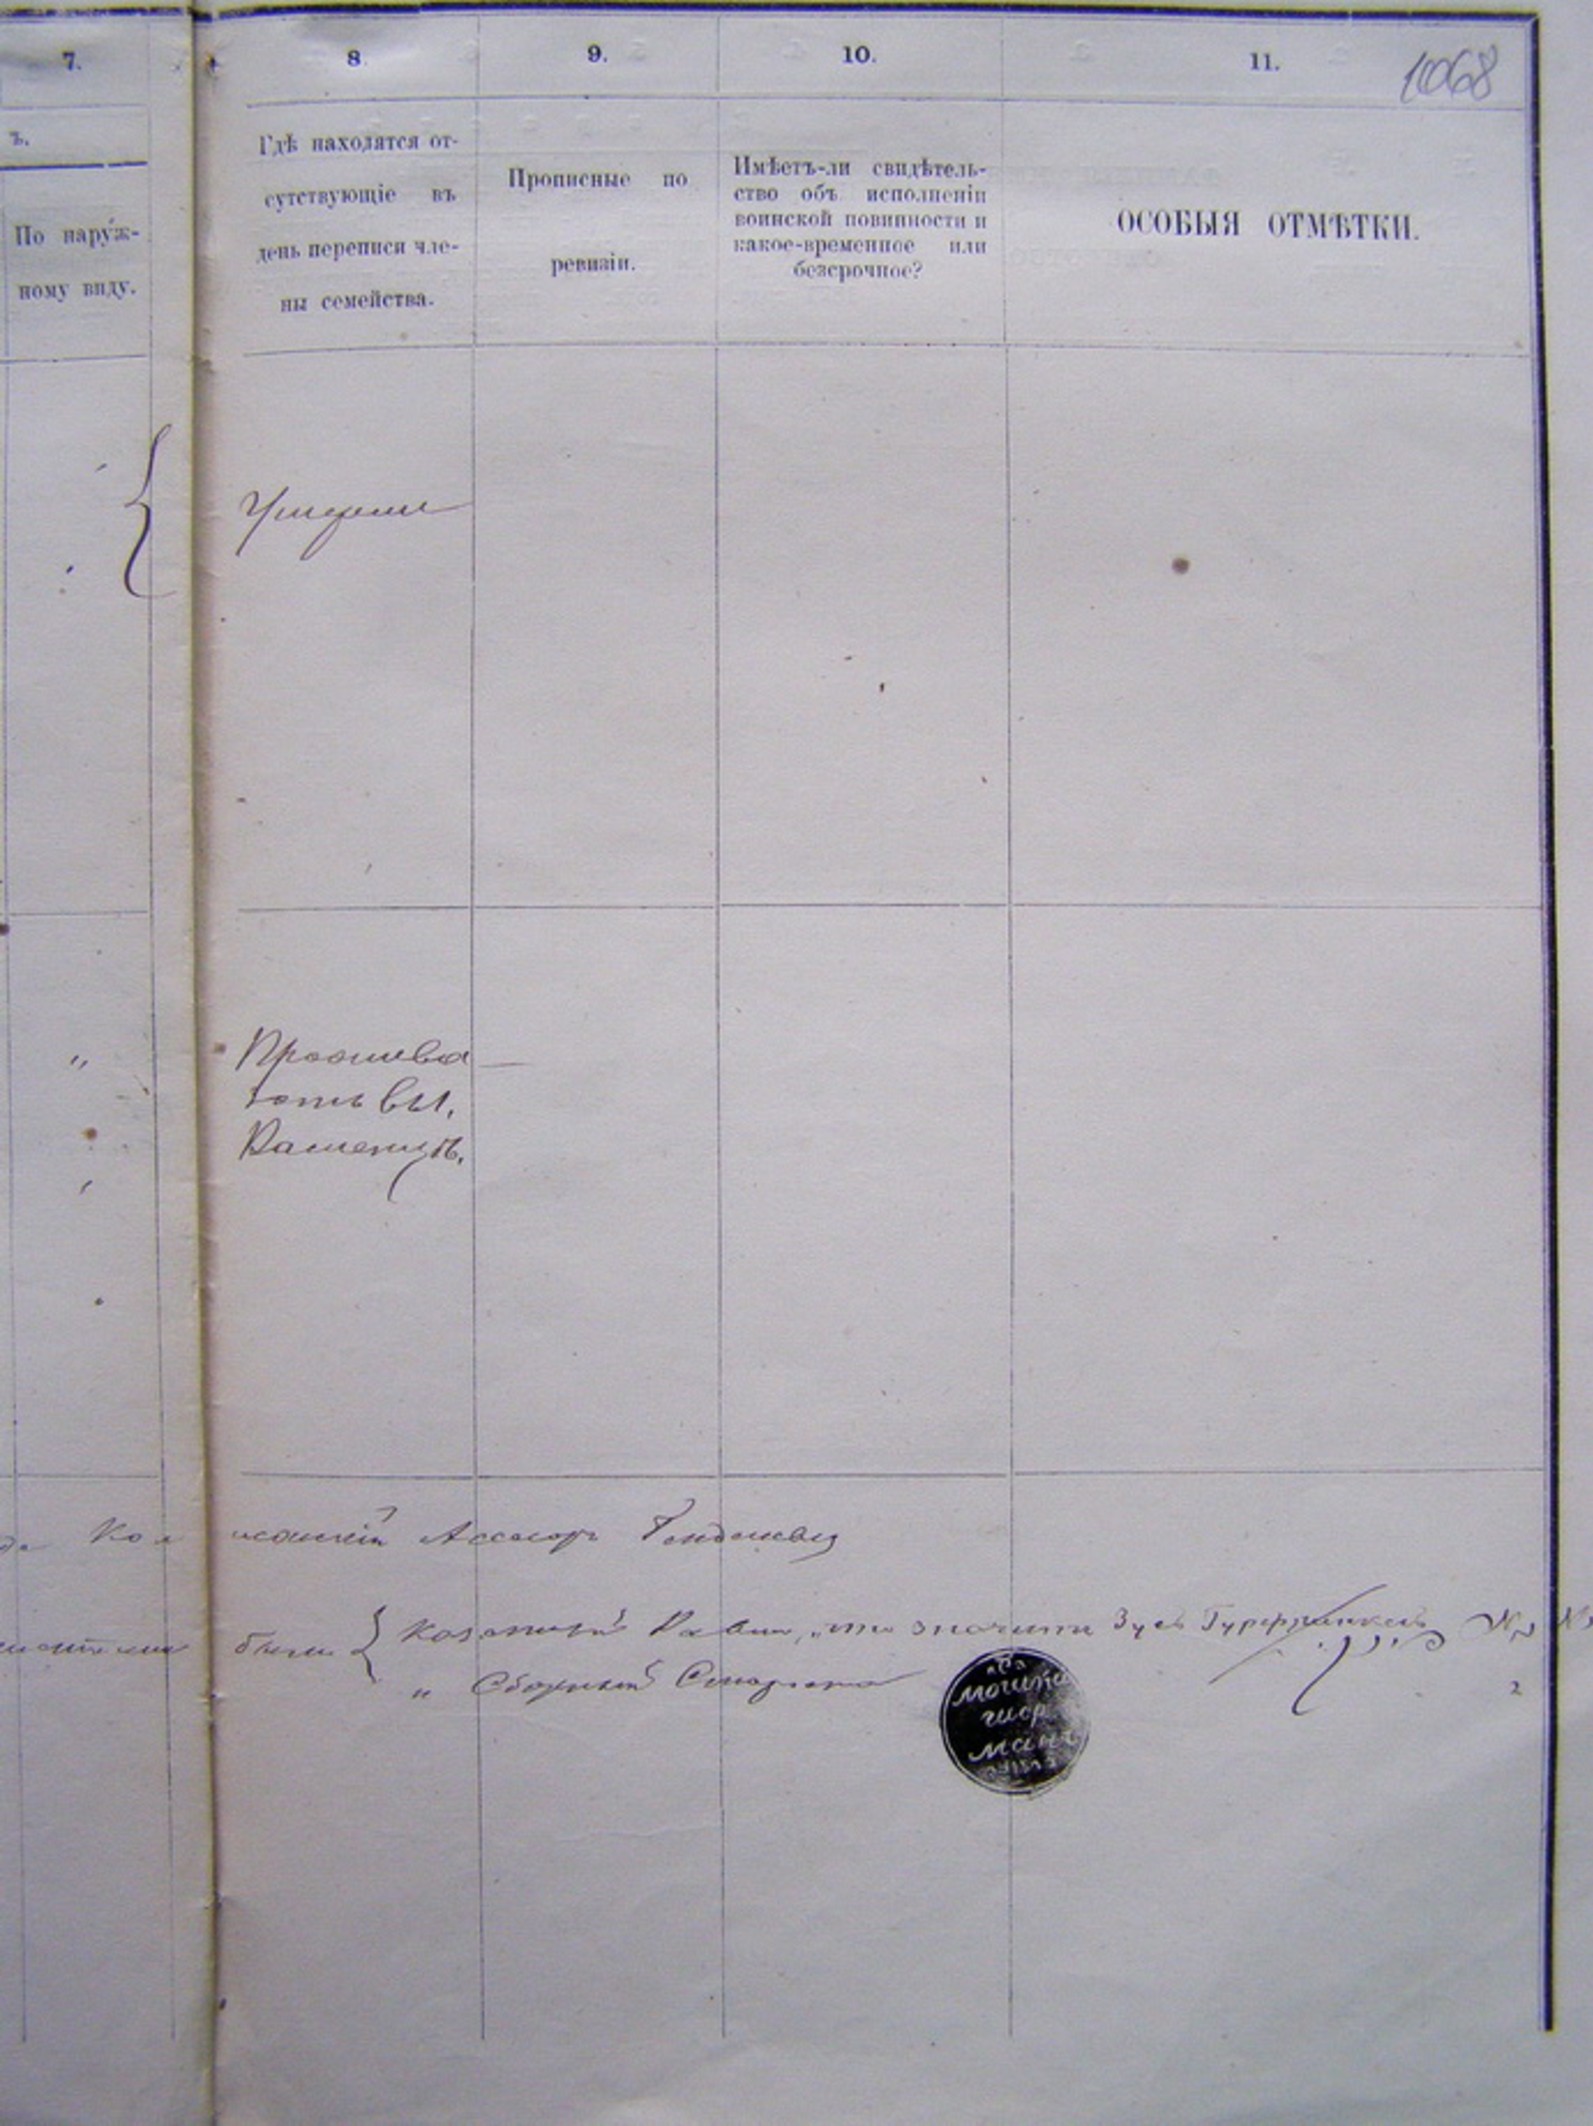 7.
8
9.
10.
11.
1068
ъ.
По наруж-
ному виду.
Гдѣ находятся от-
сутствующіе въ
день переписи чле-
ны семейства.
Прописные по
ревизіи.
Имѣетъ-ли свидѣтель-
ство объ исполненіи
воинской повинности и
какое-временное или
безсрочное?
ОСОБЫЯ ОТМѢТКИ.
Умерли
Прожива
ютъ въ
Каменцѣ.
Ассесоръ
были { Казенный Равинъ Зусь
" Сборный Староста